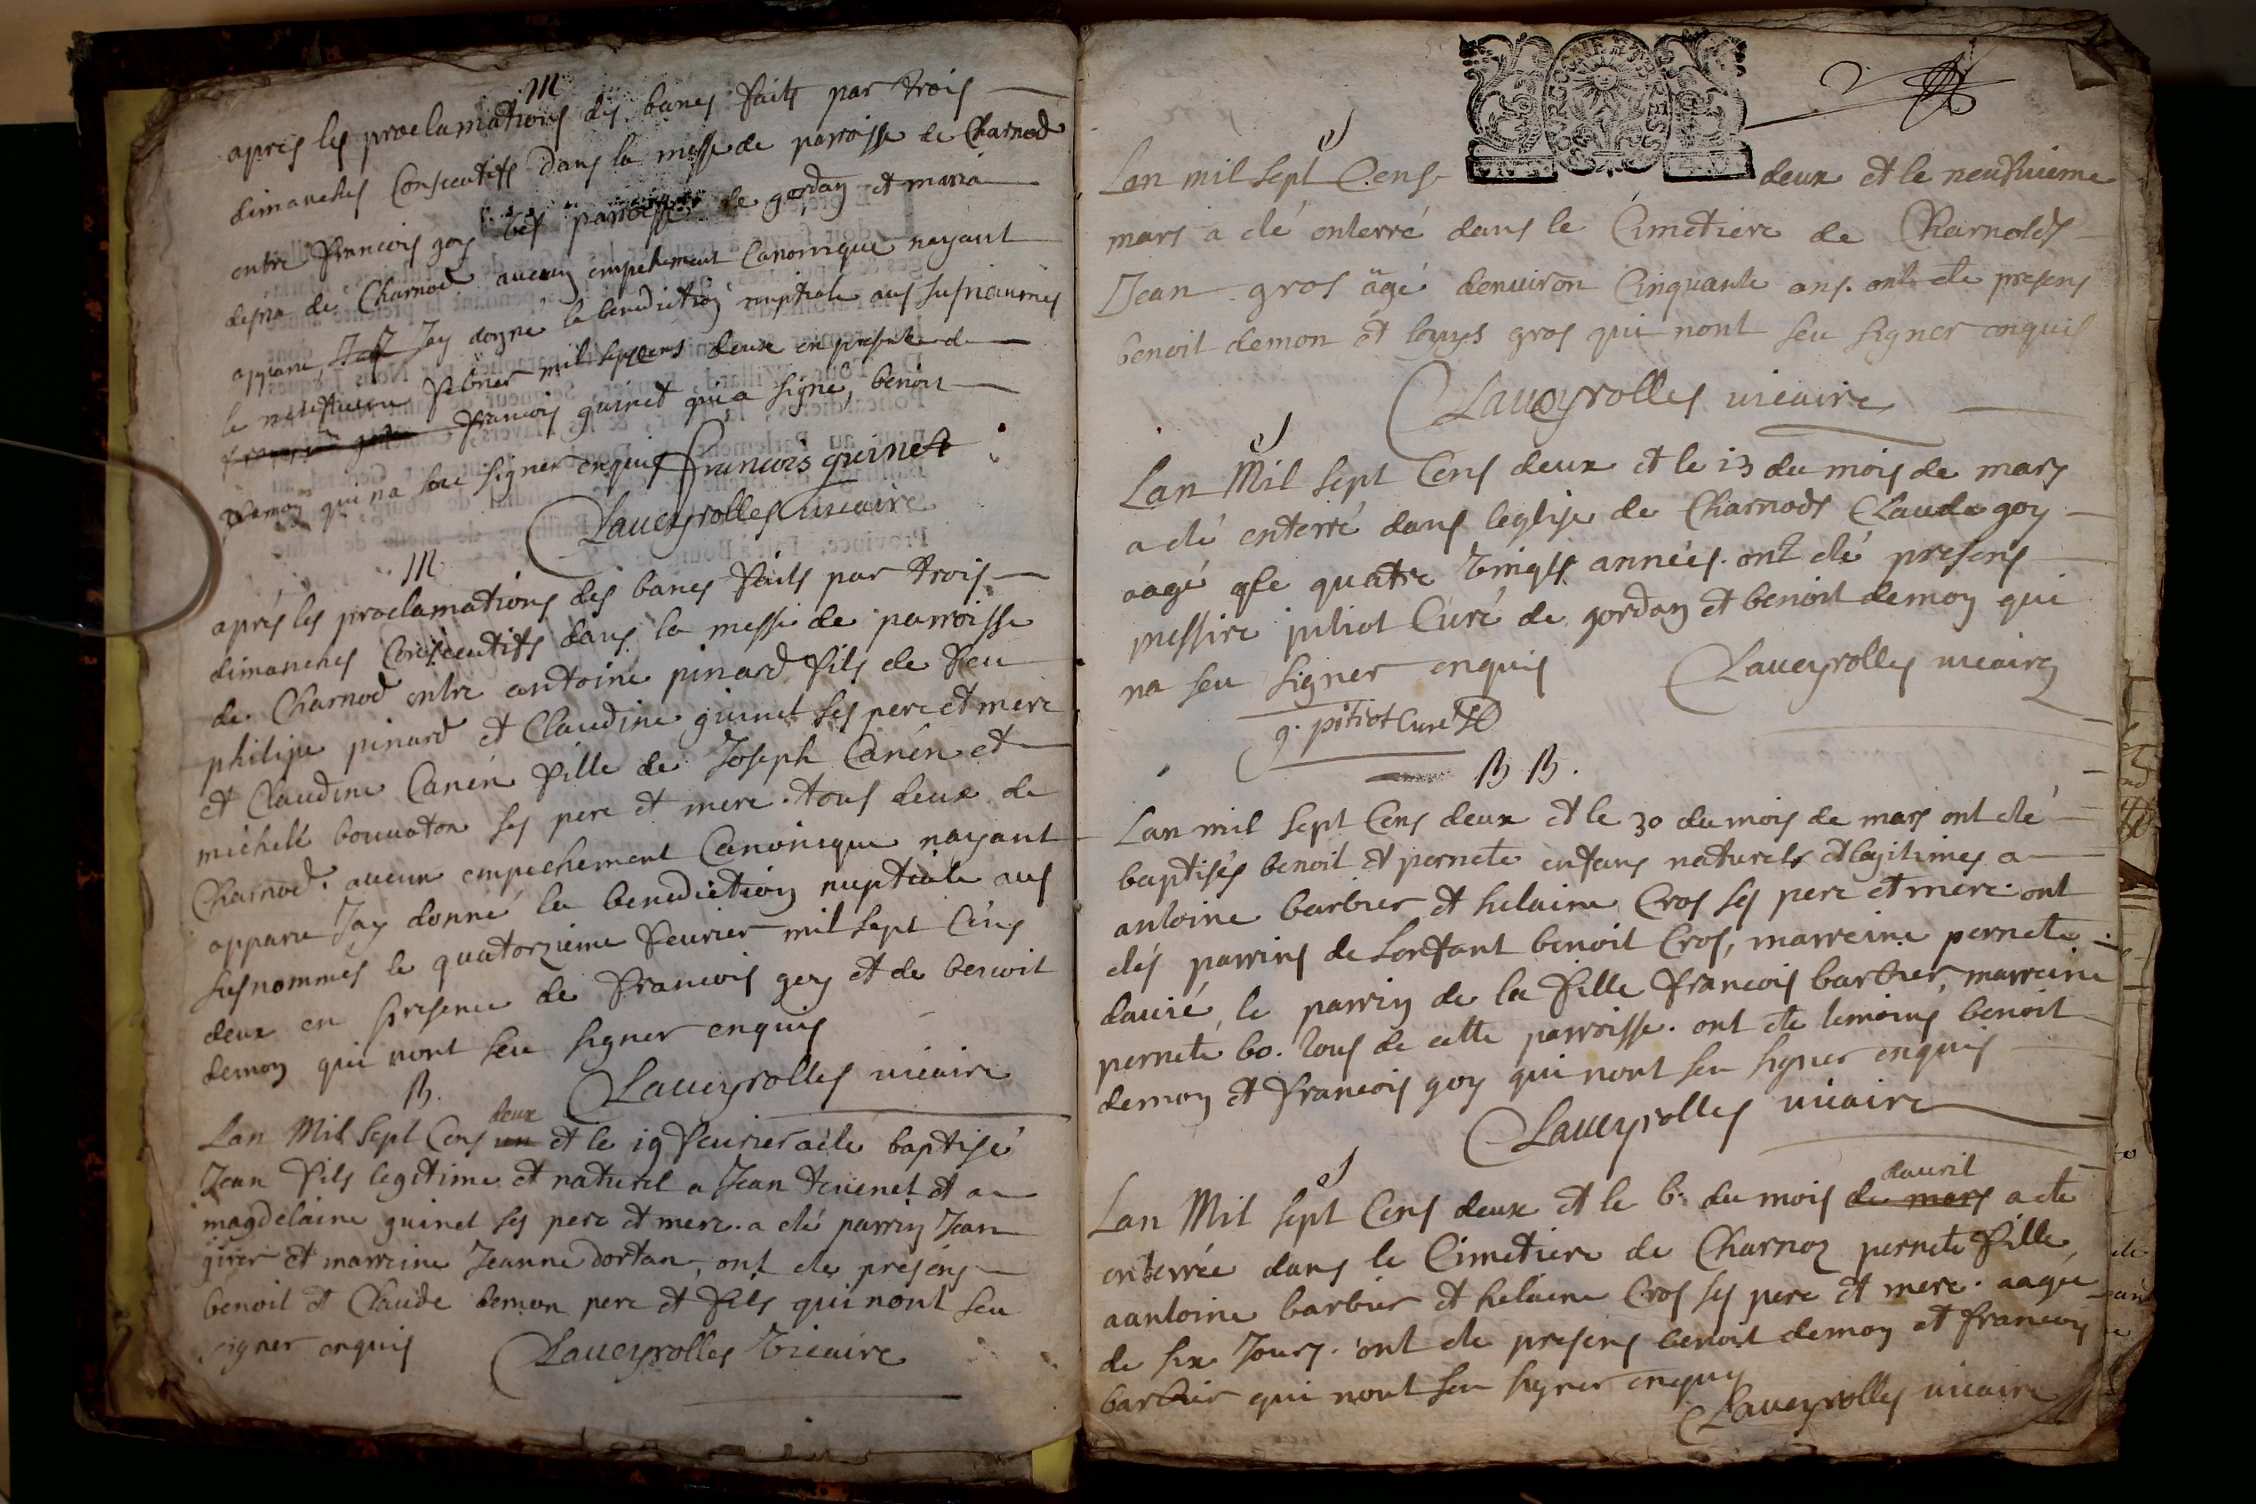 M
apres les proclamations des bancs faits par trois
dimanches consecutifs dans la messe de parroisse de Charnod
entre francois goy des parroisses de gordan et maria
de Charnod aucun empechement Canonique nayant
apparu Jay donné la benediction nuptiale aus susnommés
le feburier mil sept cens deux en presence de
francois guinet qui a signé, benoit
demon qui na sceu signer enquis francois guinet
Laueyrolles uicaire
M
aprés les proclamations des bancs faits par trois
dimanches Consecutifs dans la messe de parroisse
de Charnod entre antoine pinard fils de feu
philipe pinard et Claudine guinet ses pere et mere
et Claudine Canen fille de Joseph Canén et
michelle bouuaton ses pere et mere. tous deux de
Charnod. aucun empechement Canonique nayant
apparu Jay donné la benediction nuptiale aus
susnommés le quatorzieme feurier mil sept Cens
deux en presence de francois goy et de benoit
demon qui nont seu signer enquis
Laueyrolles uicaire
B.
Lan Mil sept Cens un deux et le 19 feurier a ete baptisé
Jean fils legitime et naturel a Jean teuenet et a
magdelaine guinet ses pere et mere. a eté parrin Jean
girer et marreine Jeanne dortan, ont ete presens
benoit et Claude demon pere et fils qui nont seu
signer enquis Laueyrolles Vicaire
S
Lan mil sept Cens deux et le neufuieme
mars a eté enterré dans le Cimetiere de Charnods
Jean gros âgé denuiron Cinquante ans. ont ete presens
benoit demon et louys gros qui nont seu signer enquis
Laueyrolles uicaire
S
Lan Mil sept Cens deux et le 13 du mois de mars
a eté enterré dans leglise de Charnods Claude goy
aagé de quatre Vingts années. ont eté presens
messire pitiot Curé de gordan et benoit demon qui
na seu signer enquis Laueyrolles uicaire
g. pitiot Curé
B B.
Lan mil sept Cens deux et le 30 du mois de mars ont eté
baptisés benoit et pernete enfans naturels et legitimes a
antoine barbier et helaine Cros ses pere et mere. ont
etés parrins de Lenfant benoit Cros, marreine pernete
dauié, le parrin de la fille francois barbier, marreine
pernete bo. tous de cette parroisse. ont ete temoins benoit
demon et francois goy qui nont seu signer enquis
Laueyrolles uicaire
S
Lan Mil sept Cens deux et le 6. du mois de mars dauril a ete
enterrée dans le Cimetiere de Charnoz pernete fille
a antoine barbier et helaine Cros ses pere et mere. aagée
de six Jours. ont ete presens benoit demon et francois
barbier qui nont seu signer enquis
Laueyrolles uicaire